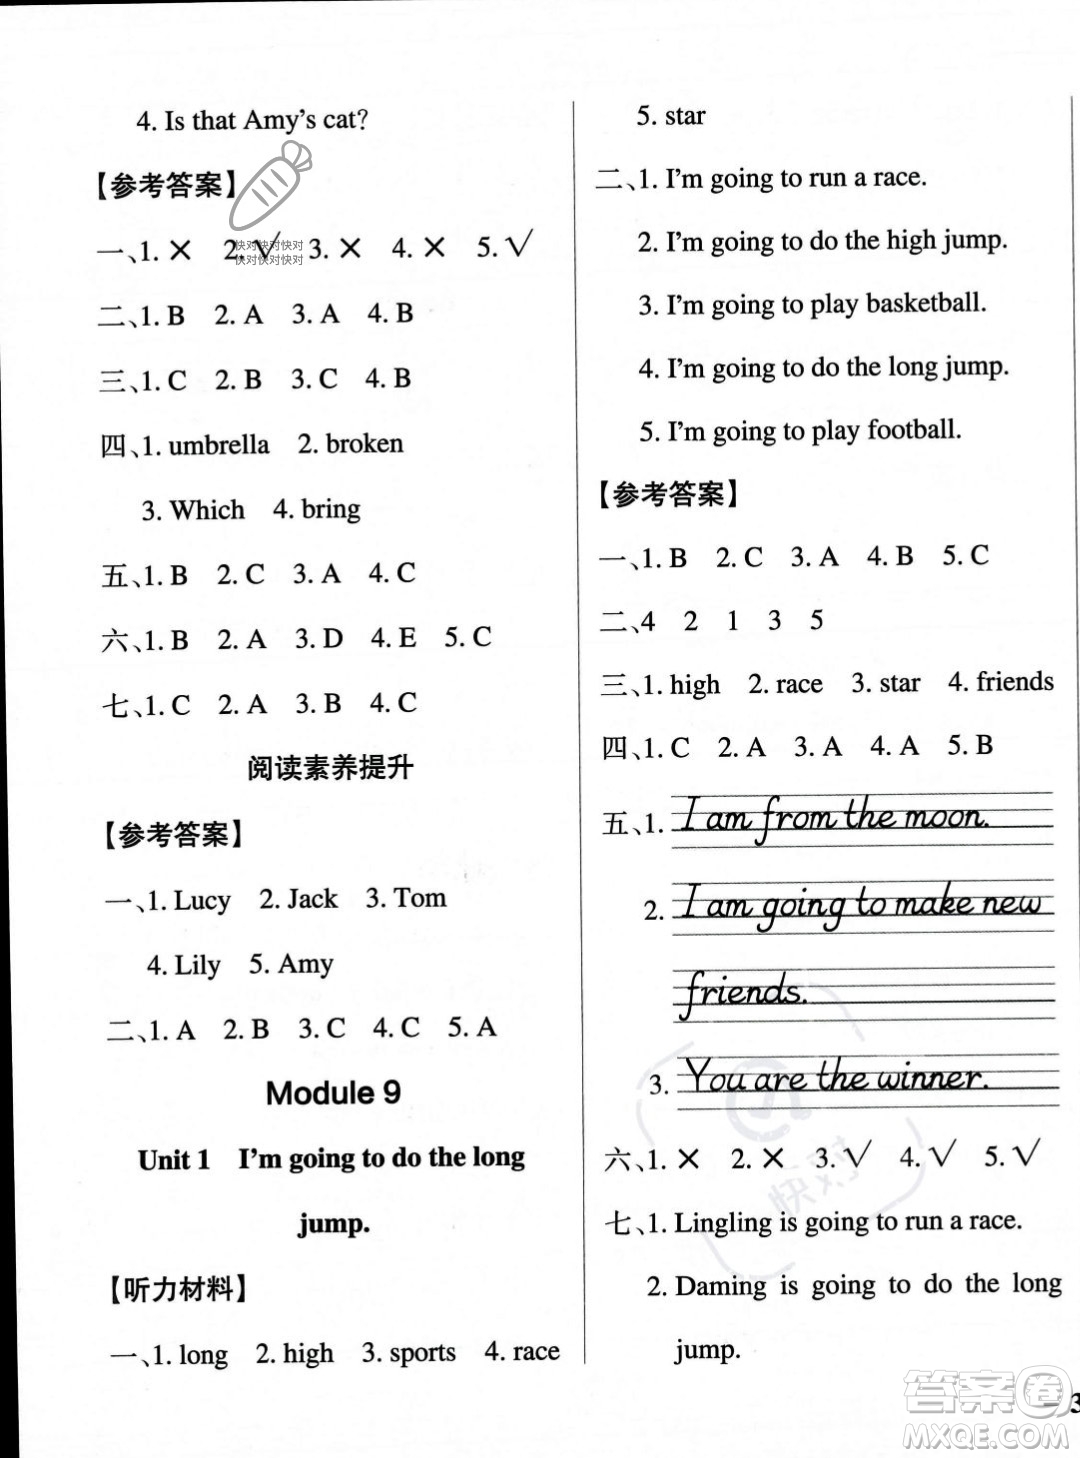 4. Is that Amy's cat?
【参考答案】
一、1. ✕ 2. √ 3. ✕ 4. ✕ 5. √
快对快对快对
快对快对快对
二、1. B 2. A 3. A 4. B
三、1. C 2. B 3. C 4. B
四、1. umbrella 2. broken
3. Which 4. bring
五、1. B 2. C 3. A 4. C
六、1. B 2. A 3. D 4. E 5. C
七、1. C 2. A 3. B 4. C
阅读素养提升
【参考答案】
一、1. Lucy 2. Jack 3. Tom
4. Lily 5. Amy
二、1. A 2. B 3. C 4. C 5. A
Module 9
Unit 1 I'm going to do the long
jump.
【听力材料】
一、1. long 2. high 3. sports 4. race
5. star
二、1. I'm going to run a race.
2. I'm going to do the high jump.
3. I'm going to play basketball.
4. I'm going to do the long jump.
5. I'm going to play football.
【参考答案】
一、1. B 2. C 3. A 4. B 5. C
二、4 2 1 3 5
三、1. high 2. race 3. star 4. friends
四、1. C 2. A 3. A 4. A 5. B
五、1. I am from the moon.
2. I am going to make new
friends.
3. You are the winner.
六、1. ✕ 2. ✕ 3. √ 4. √ 5. √
快对
七、1. Lingling is going to run a race.
2. Daming is going to do the long
jump.
— 3
答案圈
MXQE.COM